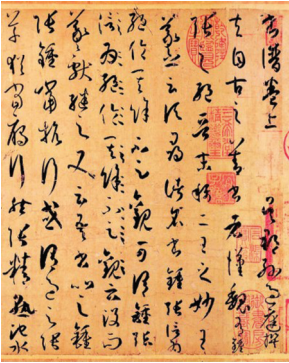 書譜卷上 吳郡孫過庭撰
夫自古之善書者漢魏有鍾
張之絕晉末稱二王之妙王
羲之云頃尋諸名書鍾張信
絕倫其餘不足觀可謂鍾張
信為絕倫其餘不足觀云沒而
羲獻繼之又云吾書比之鍾
張鍾當抗行或謂過之張
草猶當鴈行然張精熟池水